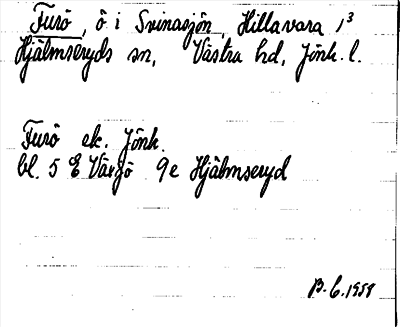 Furö, ö i Svinasjön, Hillavara 1³
Hjälmseryds sn, Västra hd, Jönk. l.
Furö ek. Jönk.
bl. 5 E Växjö 9e Hjälmseryd
B. C. 1958